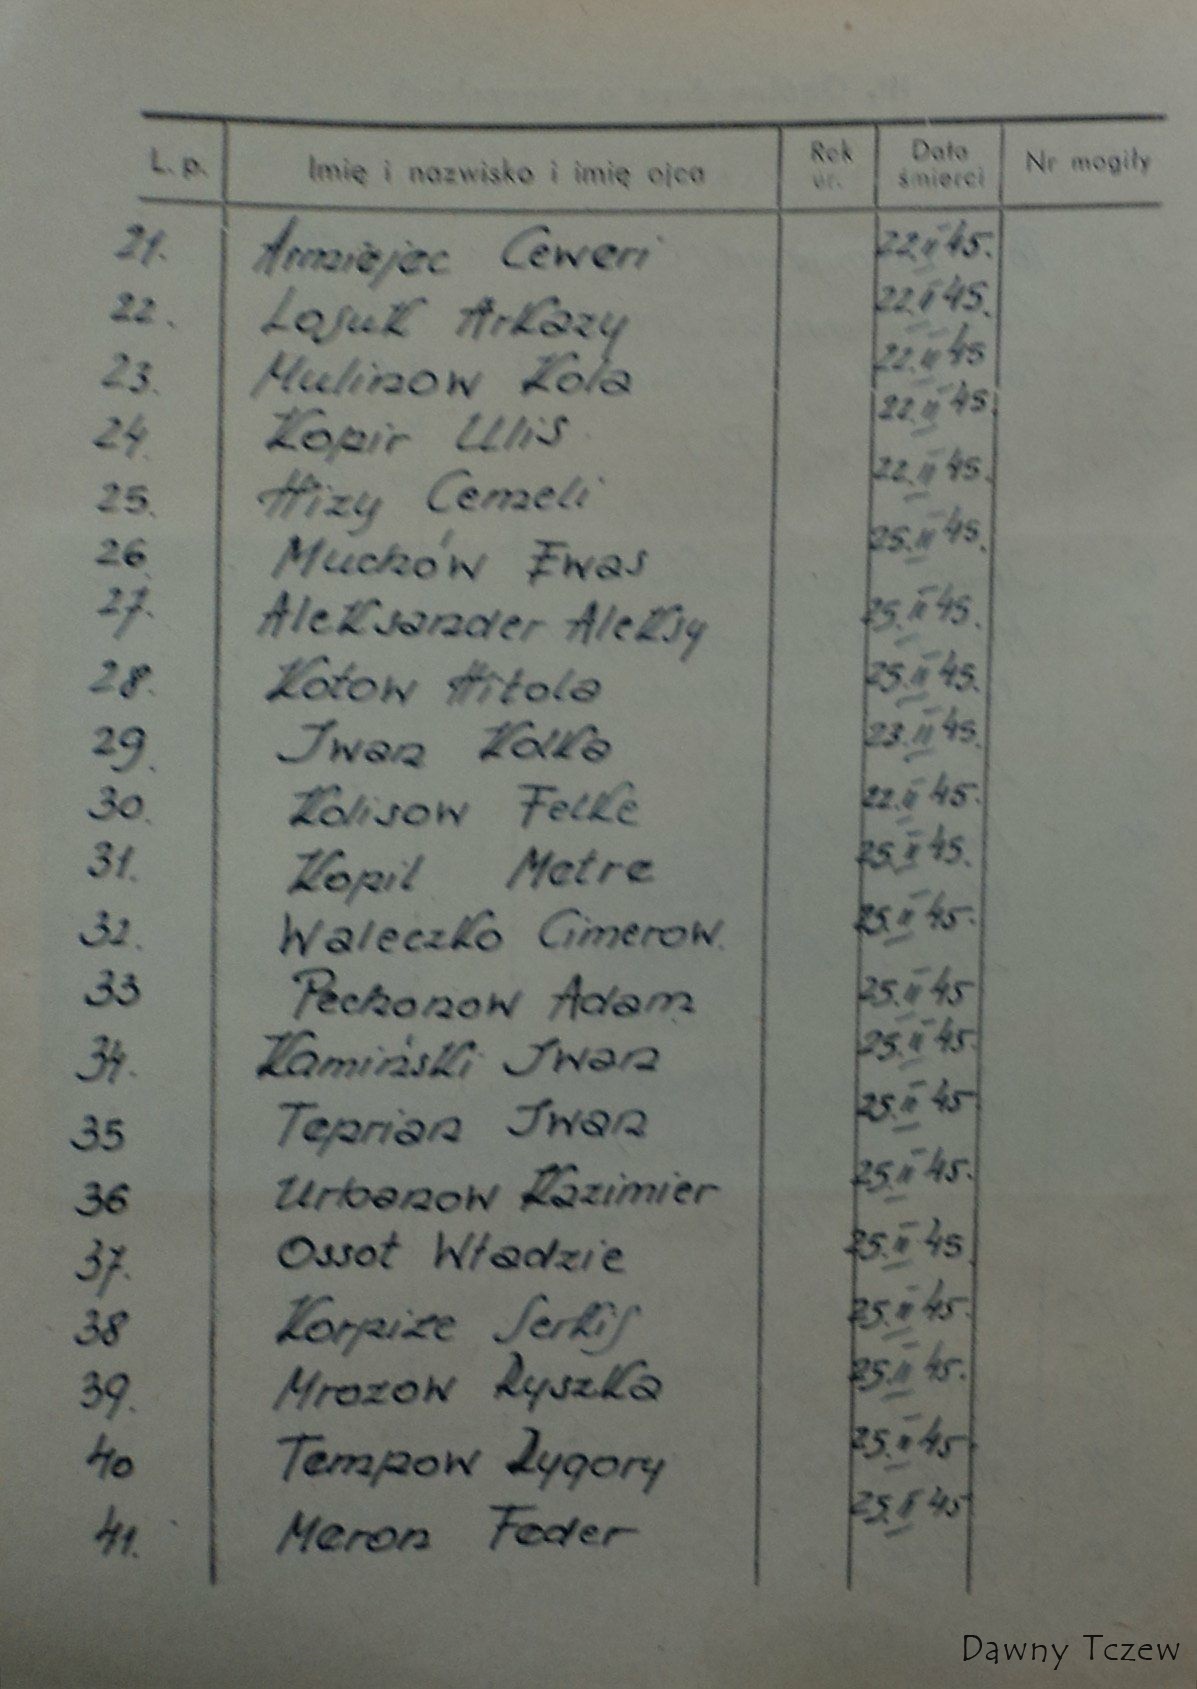 L. p. Imię i nazwisko i imię ojca Rok ur. Data śmierci Nr mogiły
21. Armiejec Ceweri 22.II 45.
22. Losuk Arkazy 22.II 45.
23. Mulinow Kola 22.II 45
24. Kopir Ulis 22.II 45.
25. Hizy Cemeli 22.II 45.
26. Muchów Ewas 25.II 45.
27. Aleksander Aleksy 25.II 45.
28. Kotow Hitola 25.II 45.
29. Iwan Kolka 23.II 45.
30. Kolisow Felke 22.II 45.
31. Kopil Metre 25.II 45.
32. Waleczko Cimerow 25.II 45.
33 Pechonow Adam 25.II 45
34. Kamiński Iwan 25.II 45.
35 Teprian Iwan 25.II 45
36 Urbanow Kazimier 25.II 45.
37. Ossot Władzie 25.II 45
38 Korpize Serkis 25.II 45.
39. Mrozow Ryszka 25.II 45.
40 Tempow Rygory 25.II 45
41. Meron Feder 25.II 45
Dawny Tczew